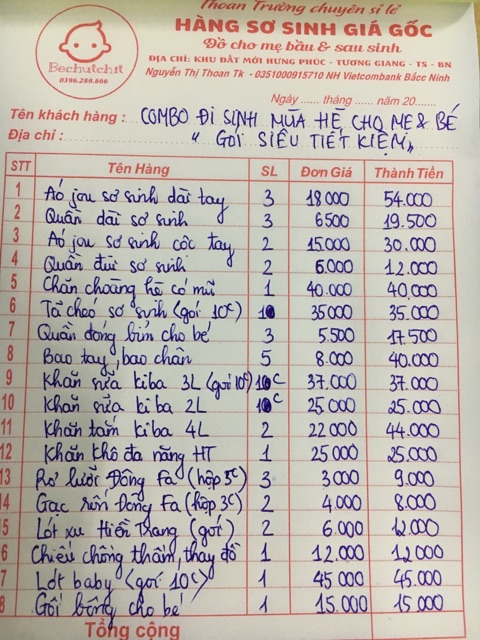 Thoan Trường chuyên sỉ lẻ
HÀNG SƠ SINH GIÁ GỐC
Đồ cho mẹ bầu & sau sinh
ĐỊA CHỈ: KHU ĐẤT MỚI HƯNG PHÚC - TƯƠNG GIANG - TS - BN
Nguyễn Thị Thoan Tk - 0351000915710 NH Vietcombank Bắcc Ninh
Bechutchit
0396.289.886
Ngày ...... tháng ...... năm 20.......
Tên khách hàng : COMBO ĐI SINH MÙA HÈ CHO MẸ & BÉ
Địa chỉ : " GÓI SIÊU TIẾT KIỆM"
STT Tên Hàng SL Đơn Giá Thành Tiền
1 Aó jou sơ sinh dài tay 3 18 000 54.000
2 Quần dài sơ sinh 3 6500 19.500
3 Aó jou sơ sinh cộc tay 2 15.000 30.000
4 Quần đùi sơ sinh 2 6.000 12.000
5 Chăn choàng hè có mũ 1 40.000 40.000
6 Tã chéo sơ sinh (gói 10c) 1 35000 35.000
7 Quần đóng bỉm cho bé 3 5.500 17.500
8 Bao tay, bao chân 5 8.000 40.000
9 Khăn sữa kiba 3L (gói 10c) 37.000 37.000
10 Khăn sữa kiba 2L 25 000 25.000
11 Khăn tắm kiba 4L 2 22 000 44.000
12 Khăn khô đa năng HT 1 25000 25.000
13 Rơ lưỡi Đông Fa (hộp 5c) 3 3 000 9.000
14 Gạc rốn Đông Fa (hộp 3c) 2 4.000 8.000
5 Lót xu Hiền Trang (gói) 2 6.000 12.000
6 Chiếu chống thấm, thay đồ 1 12.000 12000
7 Lót baby (gói 10c) 1 45 000 45.000
8 Gối bông cho bé 1 15.000 15 000
Tổng cộng